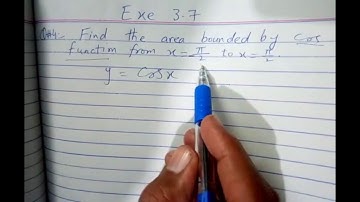 Exe 3.7
Q#4:- Find the area bounded by cos
function from x = -π/2 to x = π/2
y = cos x